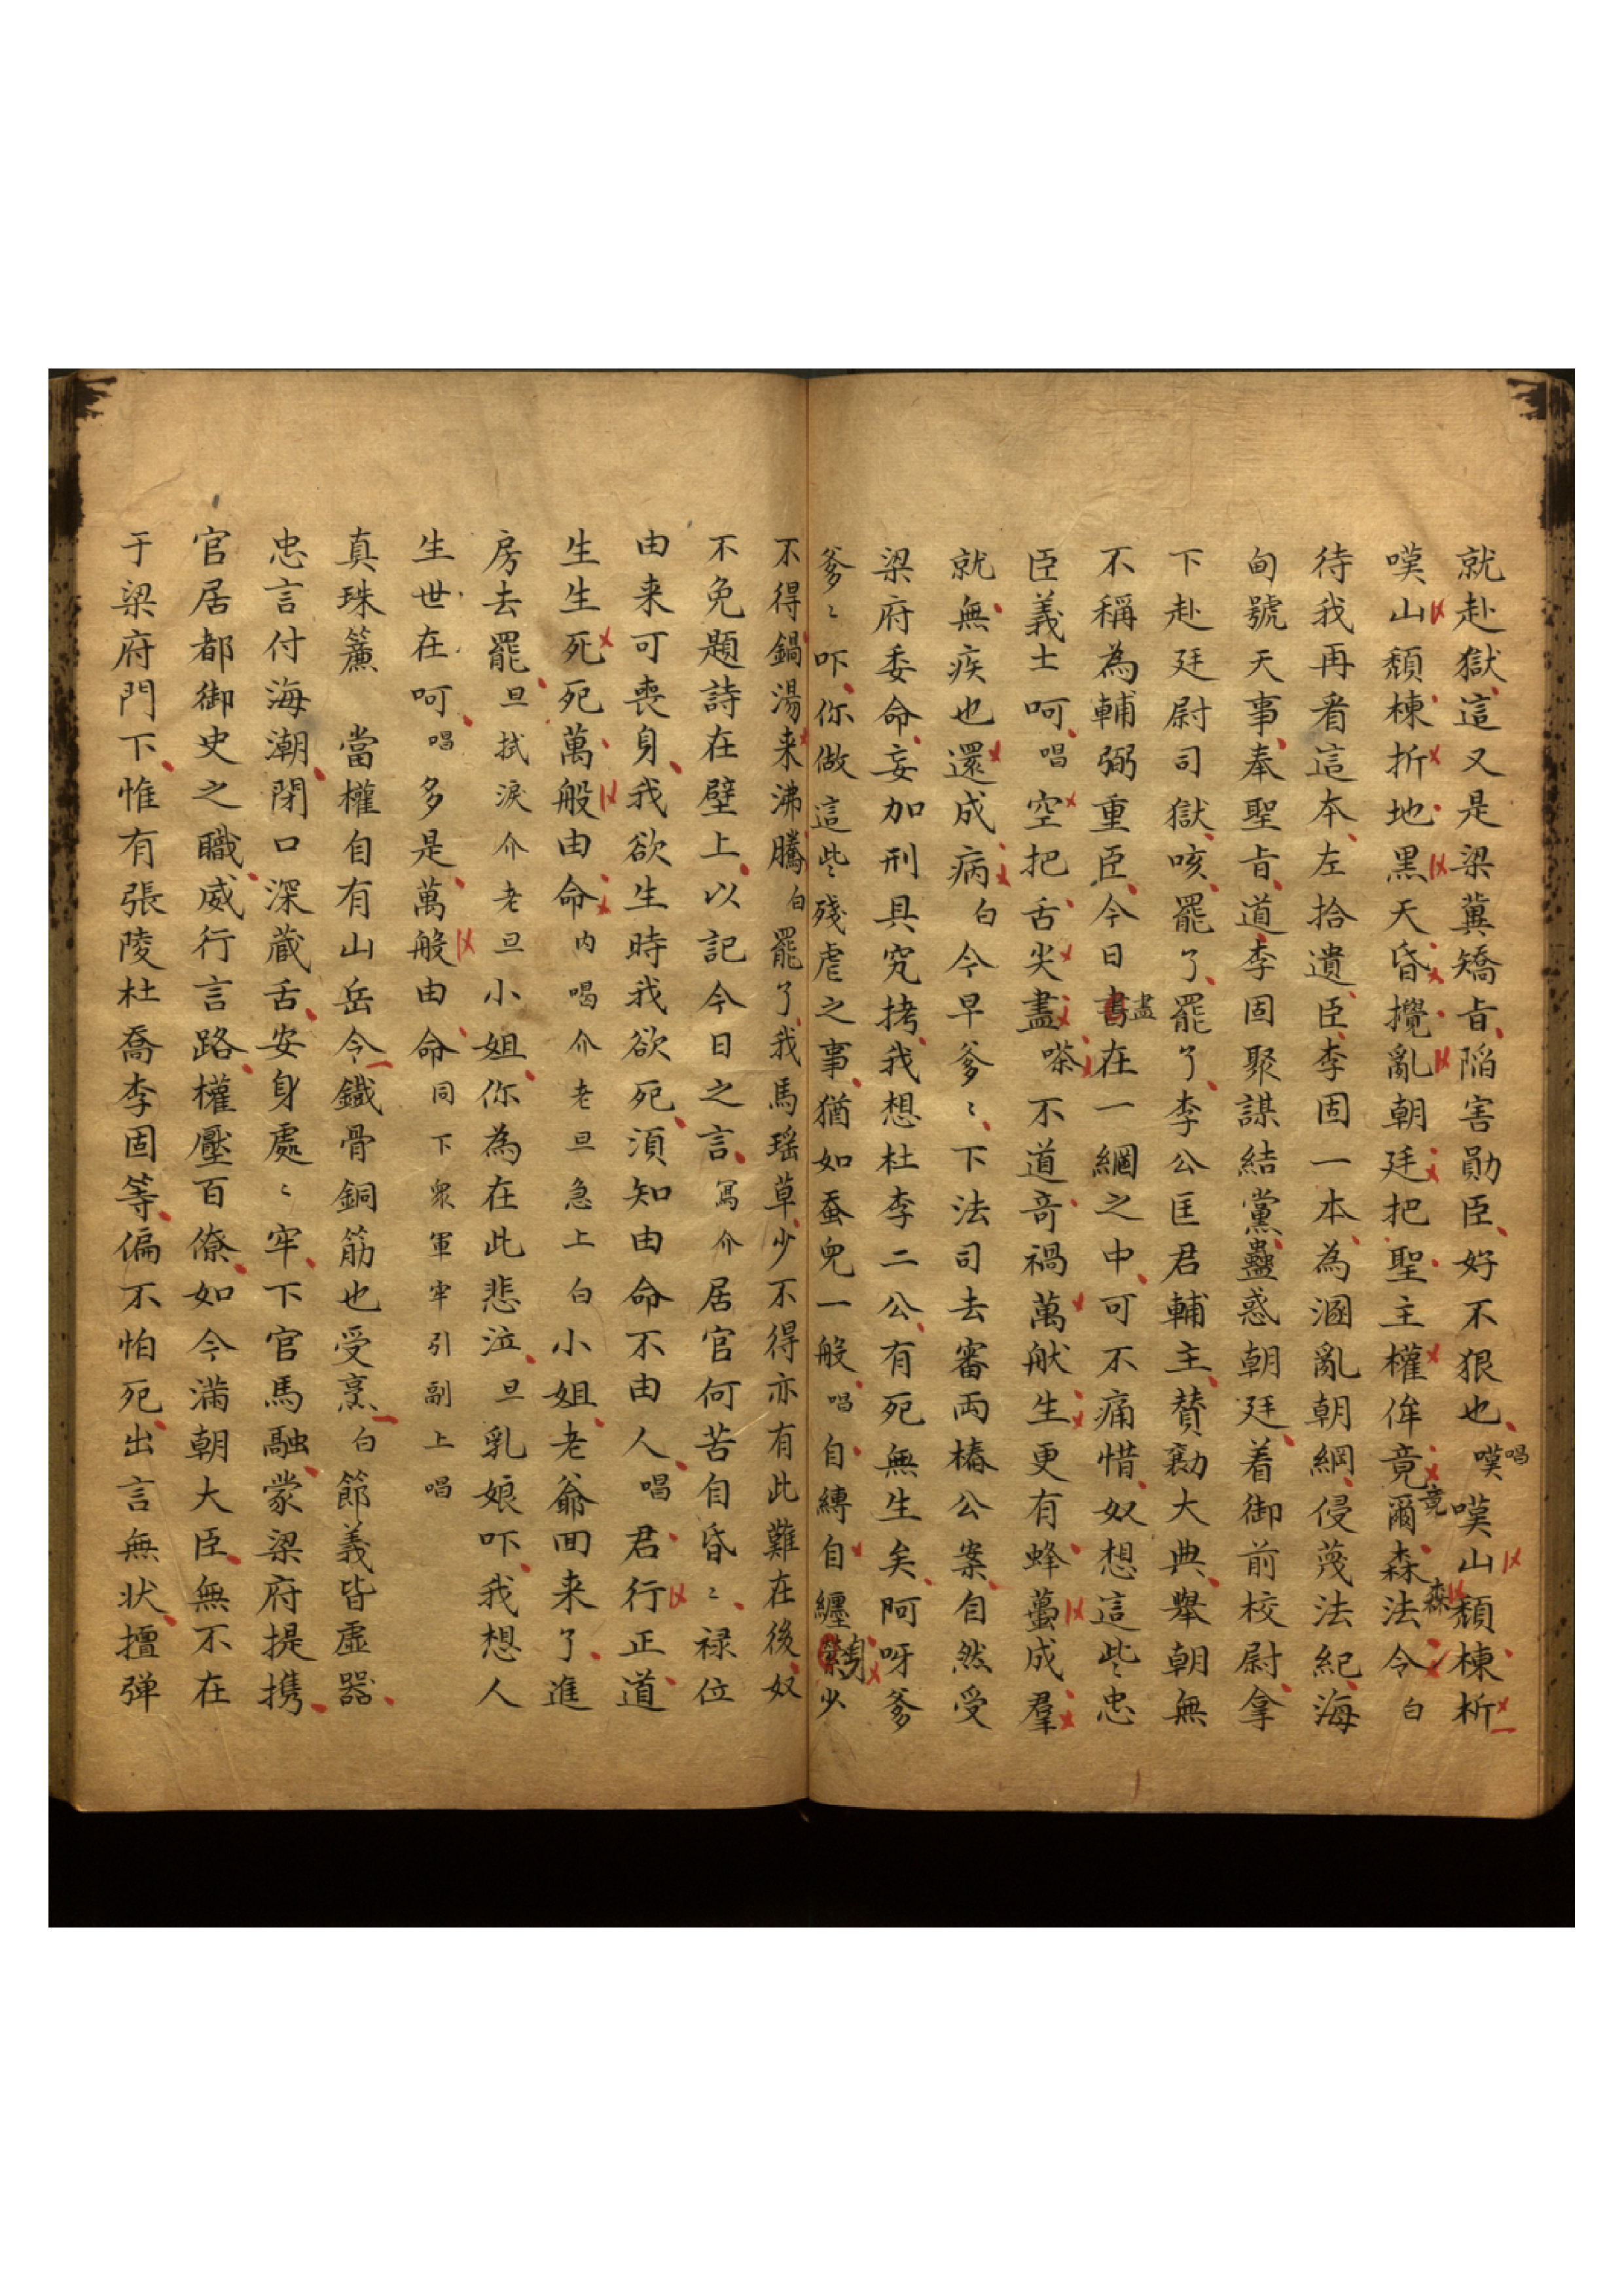 就赴獄這又是梁冀矯旨陷害勛臣好不狠也唱嘆嘆山頹棟折
嘆山頹棟折地黑天昏攪亂朝廷把聖主權侔竟竟爾森森法令白
待我再看這本左拾遺臣李固一本為溷亂朝綱侵蔑法紀海
甸號天事奉聖旨道李固聚謀結黨蠱惑朝廷着御前校尉拿
下赴廷尉司獄咳罷了罷了李公匡君輔主贊勷大典舉朝無
不稱為輔弼重臣今日書盡在一網之中可不痛惜奴想這些忠
臣義士呵唱空把舌尖盡嗏不道竒禍萬般生更有蜂蠆成羣
就無疾也還成病白今早爹〻下法司去審両樁公案自然受
梁府委命妄加刑具究拷我想杜李二公有死無生矣阿呀爹
爹〻吓你做這些殘虐之事猶如蚕兒一般唱自縛自纏身少
不得鍋湯来沸騰白罷了我馬瑶草少不得亦有此難在後奴
不免題詩在壁上以記今日之言寫介居官何苦自昏〻禄位
由来可喪身我欲生時我欲死湏知由命不由人唱君行正道
生生死死萬般由命内喝介老旦急上白小姐老爺囬来了進
房去罷旦拭淚介老旦小姐你為在此悲泣旦乳娘吓我想人
生世在呵唱多是萬般由命同下衆軍牢引副上唱
真珠簾　當權自有山岳令鐵骨銅筋也受烹白節義皆虛器
忠言付海潮閉口深蔵舌安身處〻牢下官馬融蒙梁府提携
官居都御史之職威行言路權壓百僚如今滿朝大臣無不在
于梁府門下惟有張陵杜喬李固等偏不怕死出言無状擅弹